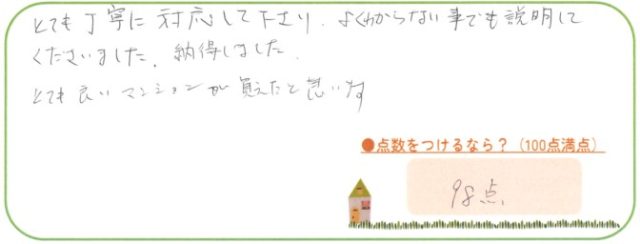 とても丁寧に対応して下さり、よくわからない事でも説明して
くださいました。納得しました。
とても良いマンションが買えたと思います
●点数をつけるなら？（100点満点）
98点